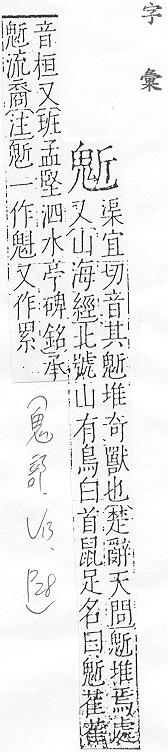 字彙
鬿
渠宜切音其鬿堆奇獸也楚辭天問鬿堆焉處
又山海經北號山有鳥白首鼠足名曰鬿萑萑
音桓又班孟堅泗水亭碑銘承
鬿流裔注鬿一作魁又作累
(鬼部.